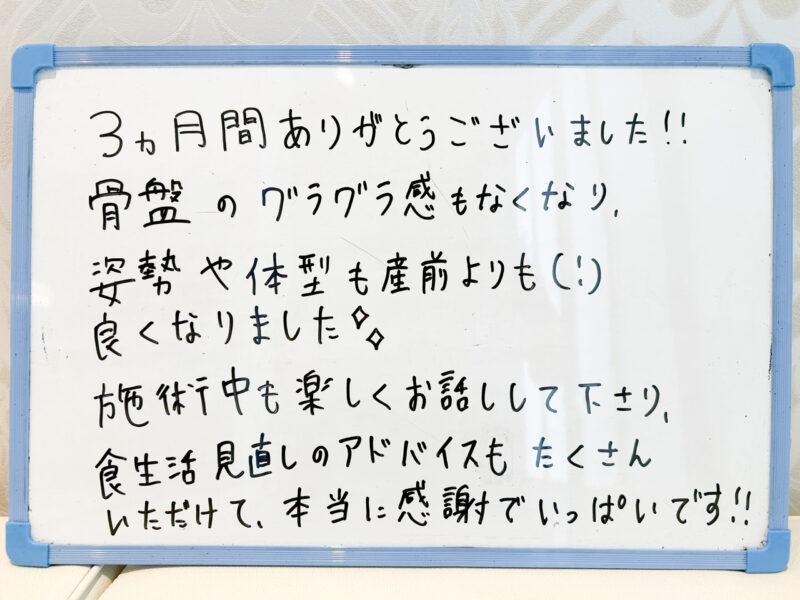 3ヵ月間ありがとうございました!!
骨盤のグラグラ感もなくなり、
姿勢や体型も産前よりも(!)
良くなりました✧✧
施術中も楽しくお話しして下さり、
食生活見直しのアドバイスもたくさん
いただけて、本当に感謝でいっぱいです!!